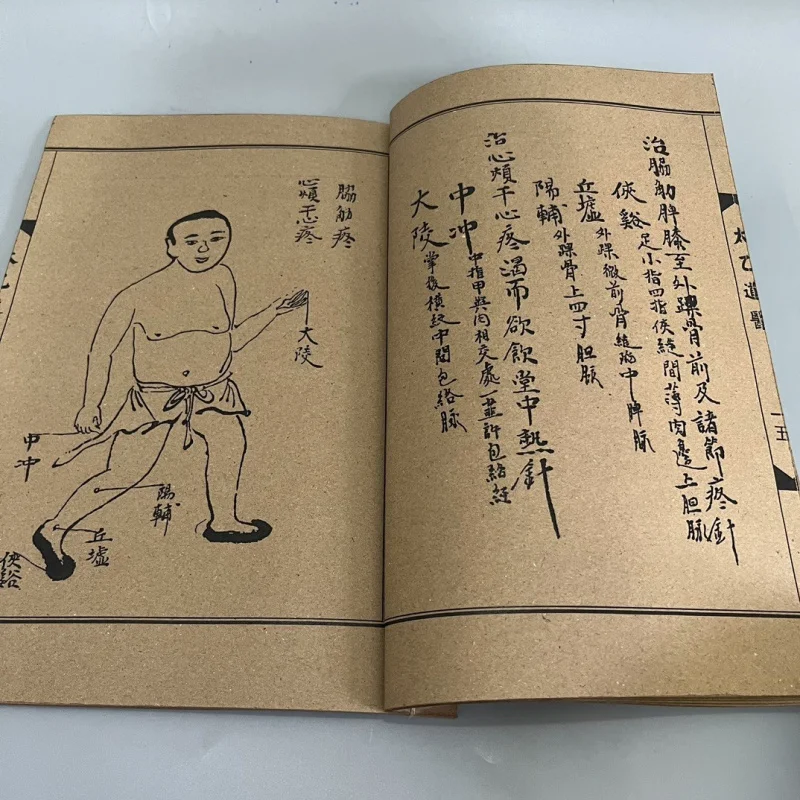 治脇肋胖膝至外踝骨前及諸節疼針
俠谿足小指四指俠縫間薄肉邊上胆脉
丘墟外踝微前骨縫陷中脾脉
陽輔外踝骨上四寸胆脉
治心煩干心疼渴而欲飲堂中熱針
中冲中指甲與肉相交處一韮許包絡經
大陵掌後橫紋中間包絡脉
太乙道醫
一五
脇肋疼
心煩干心疼
大陵
中冲
陽輔
丘墟
俠谿